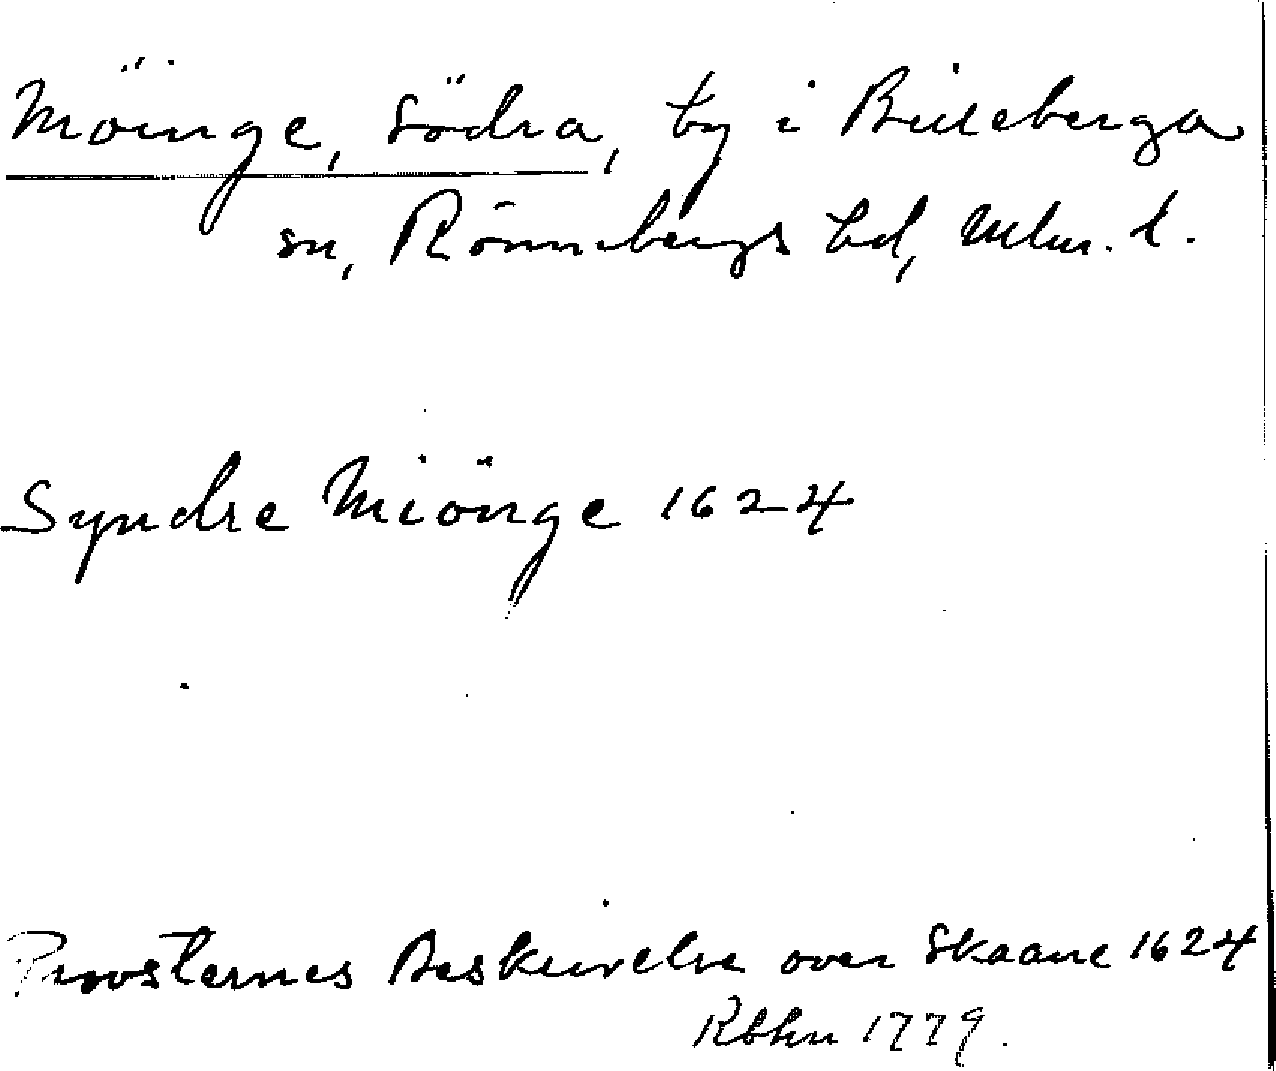 Möinge, södra, by i Billeberga
sn, Rönnebergs hd, Mlm. l.
Syndre Miönge 1624
Provsternes Beskrivelse over Skaane 1624
Kbhn 1779.